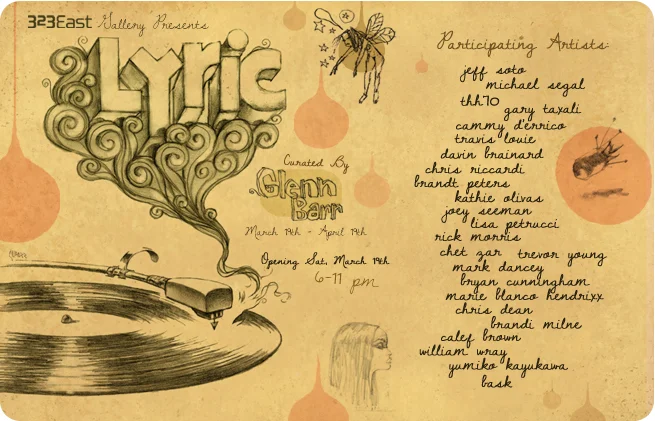 323East Gallery Presents
Lyric
Curated By
Glenn Barr
March 14th - April 14th
Opening Sat, March 14th
6-11 pm
Participating Artists:
jeff soto
michael segal
thh70
gary taxali
cammy d'errico
travis louie
davin brainard
chris riccardi
brandt peters
kathie olivas
joey seeman
lisa petrucci
rick morris
chet zar trevor young
mark dancey
bryan cunningham
marie blanco hendrixx
chris dean
brandi milne
calef brown
william wray
yumiko kayukawa
bask